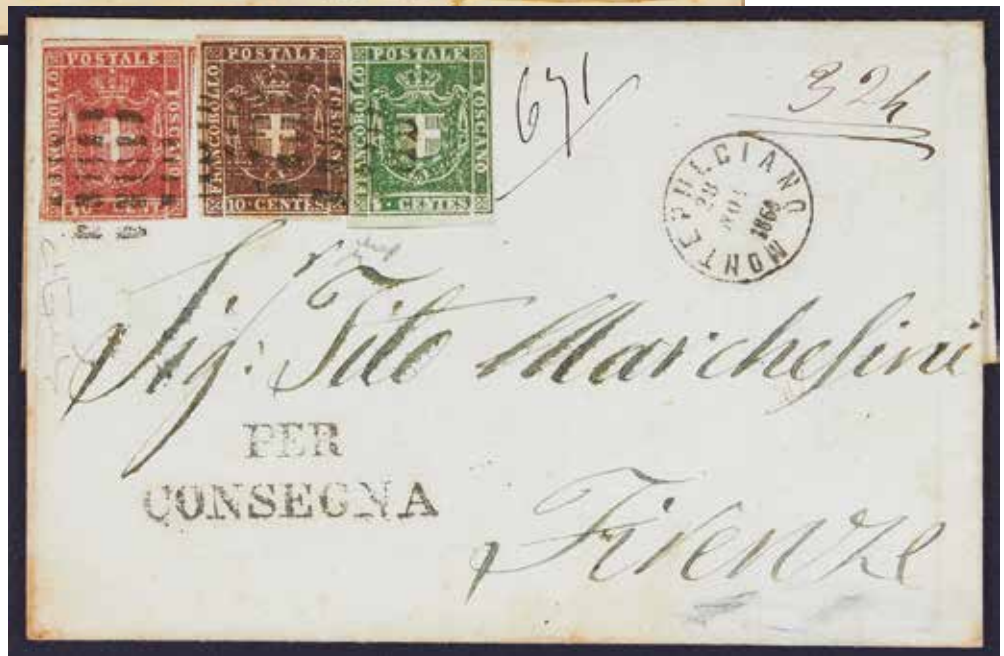 POSTALE
FRANCOBOLLO
TOSCANO
40 CENTES
POSTALE
FRANCOBOLLO
TOSCANO
10 CENTES
POSTALE
FRANCOBOLLO
TOSCANO
5 CENTES
671
32h
MONTEPULCIANO
28
NOV
1860
Sig: Tito Marchesini
PER
CONSEGNA
Firenze